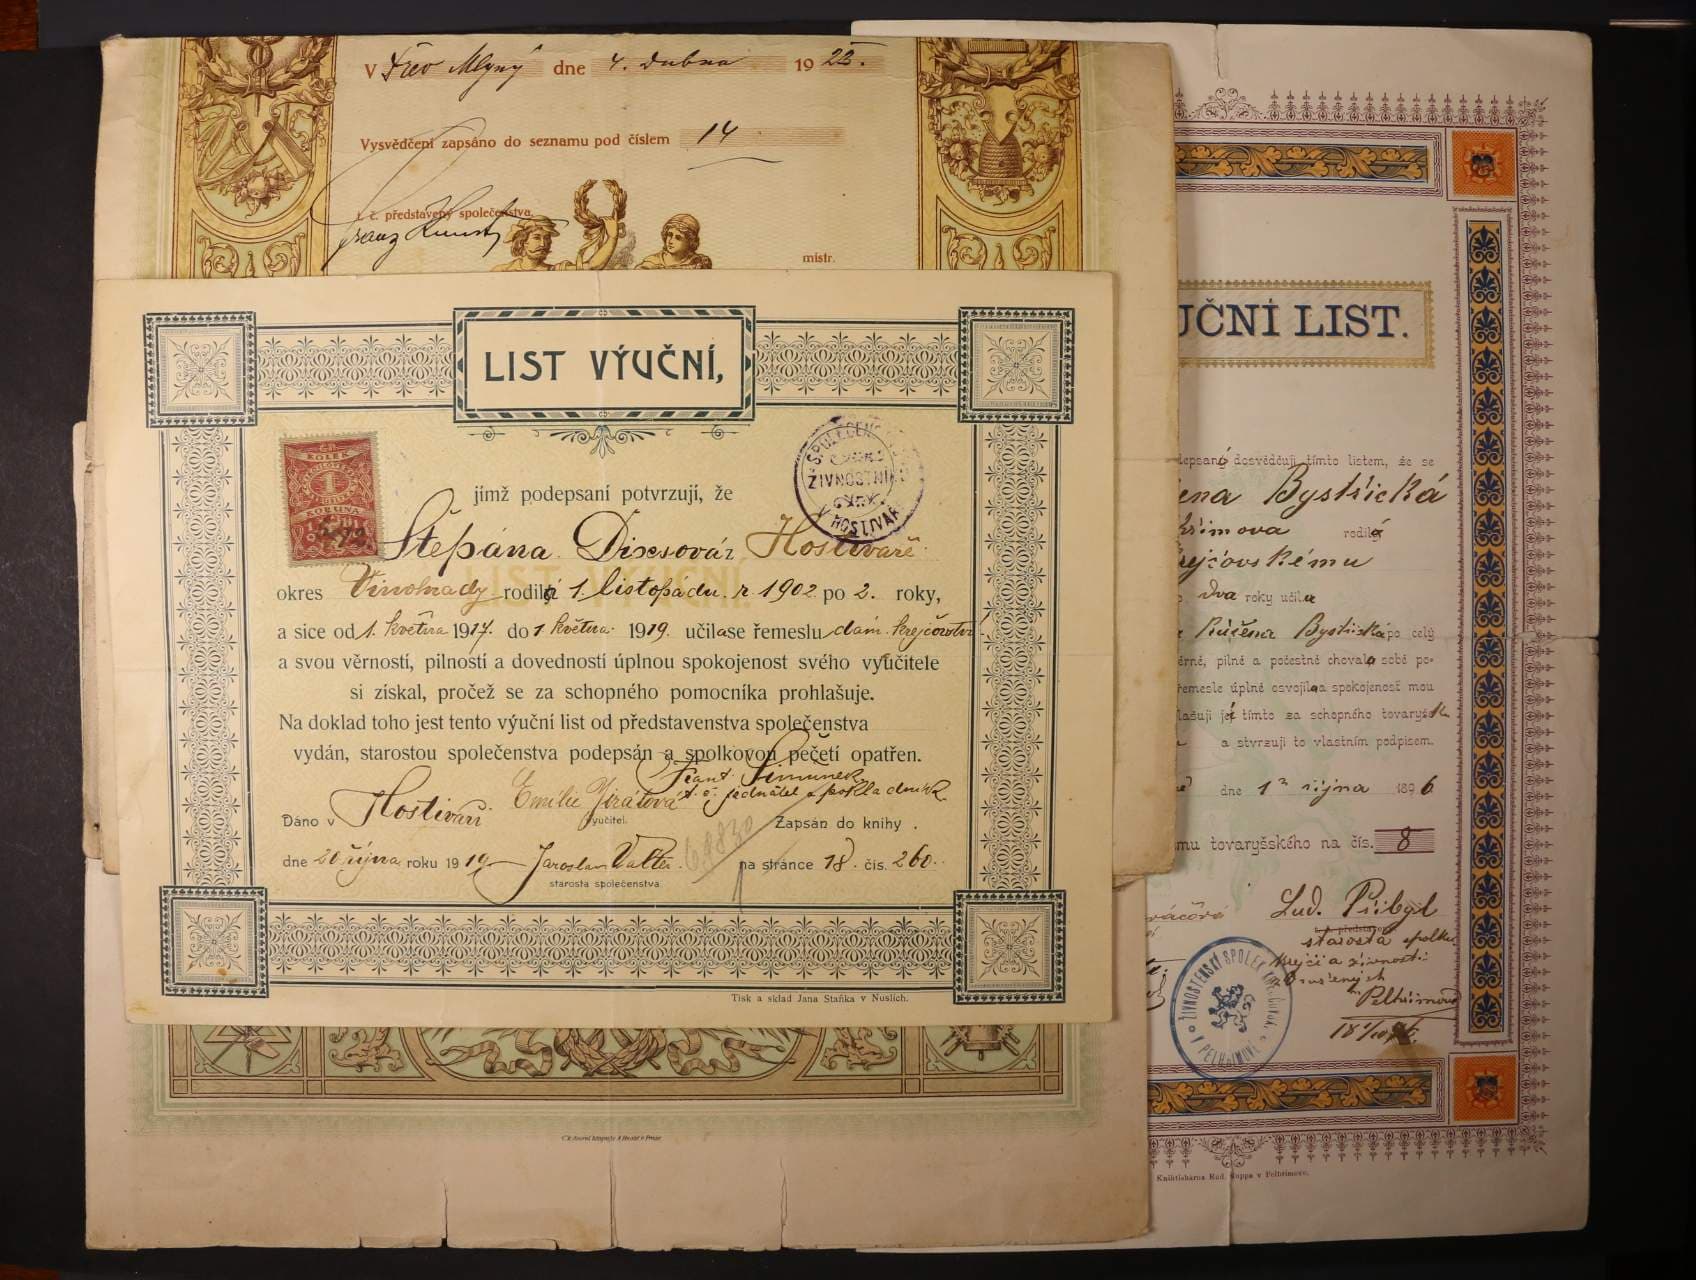 V Dřev Mlýný dne 4. dubna 1922.
Vysvědčení zapsáno do seznamu pod číslem 14
t. č. představený společenstva.
mistr.
LIST VÝUČNÍ,
KOLEK
1
KORUNA
SPOLEČENS
ŽIVNOSTNÍ
V HOSTIVAŘ
jímž podepsaní potvrzují, že
Štěpána Hostivaře
okres Vinohrady rodilá 1. listopádu r 1902 po 2. roky,
a sice od 1. května 1917. do 1 května 1919. učila se řemeslu dám. krejčovství
a svou věrností, pilností a dovedností úplnou spokojenost svého vyučitele
si získal, pročež se za schopného pomocníka prohlašuje.
Na doklad toho jest tento výuční list od představenstva společenstva
vydán, starostou společenstva podepsán a spolkovou pečetí opatřen.
Frant. Šimunek
t. č. jednatel a pokladník
Dáno v Hostivaři Emilie Jirátová Zapsán do knihy .
vyučitel.
dne 20 října roku 1919 Jaroslav Valter. na stránce 18. čís. 260.
starosta společenstva.
Tisk a sklad Jana Staňka v Nuslích.
UČNÍ LIST.
dosvědčují tímto listem, že se
ena Bystřická
hřimova rodilá
rejčovskému
dva roky učila
Růžena Bystřická po celý
ěrně, pilně a počestně chovala sobě po-
řemesle úplně osvojila a spokojenosť mou
lašuji jej tímto za schopného tovaryše
a stvrzuji to vlastním podpisem.
dne 12 října 1896
mu tovaryšského na čís. 8
Lud. Přibyl
starosta spolku
krejčí a živností
sdružených
v Pelhřimově
ŽIVNOSTENSKÝ SPOLEK
V PELHŘIMOVĚ
Knihtiskárna Rud. v Pelhřimově.